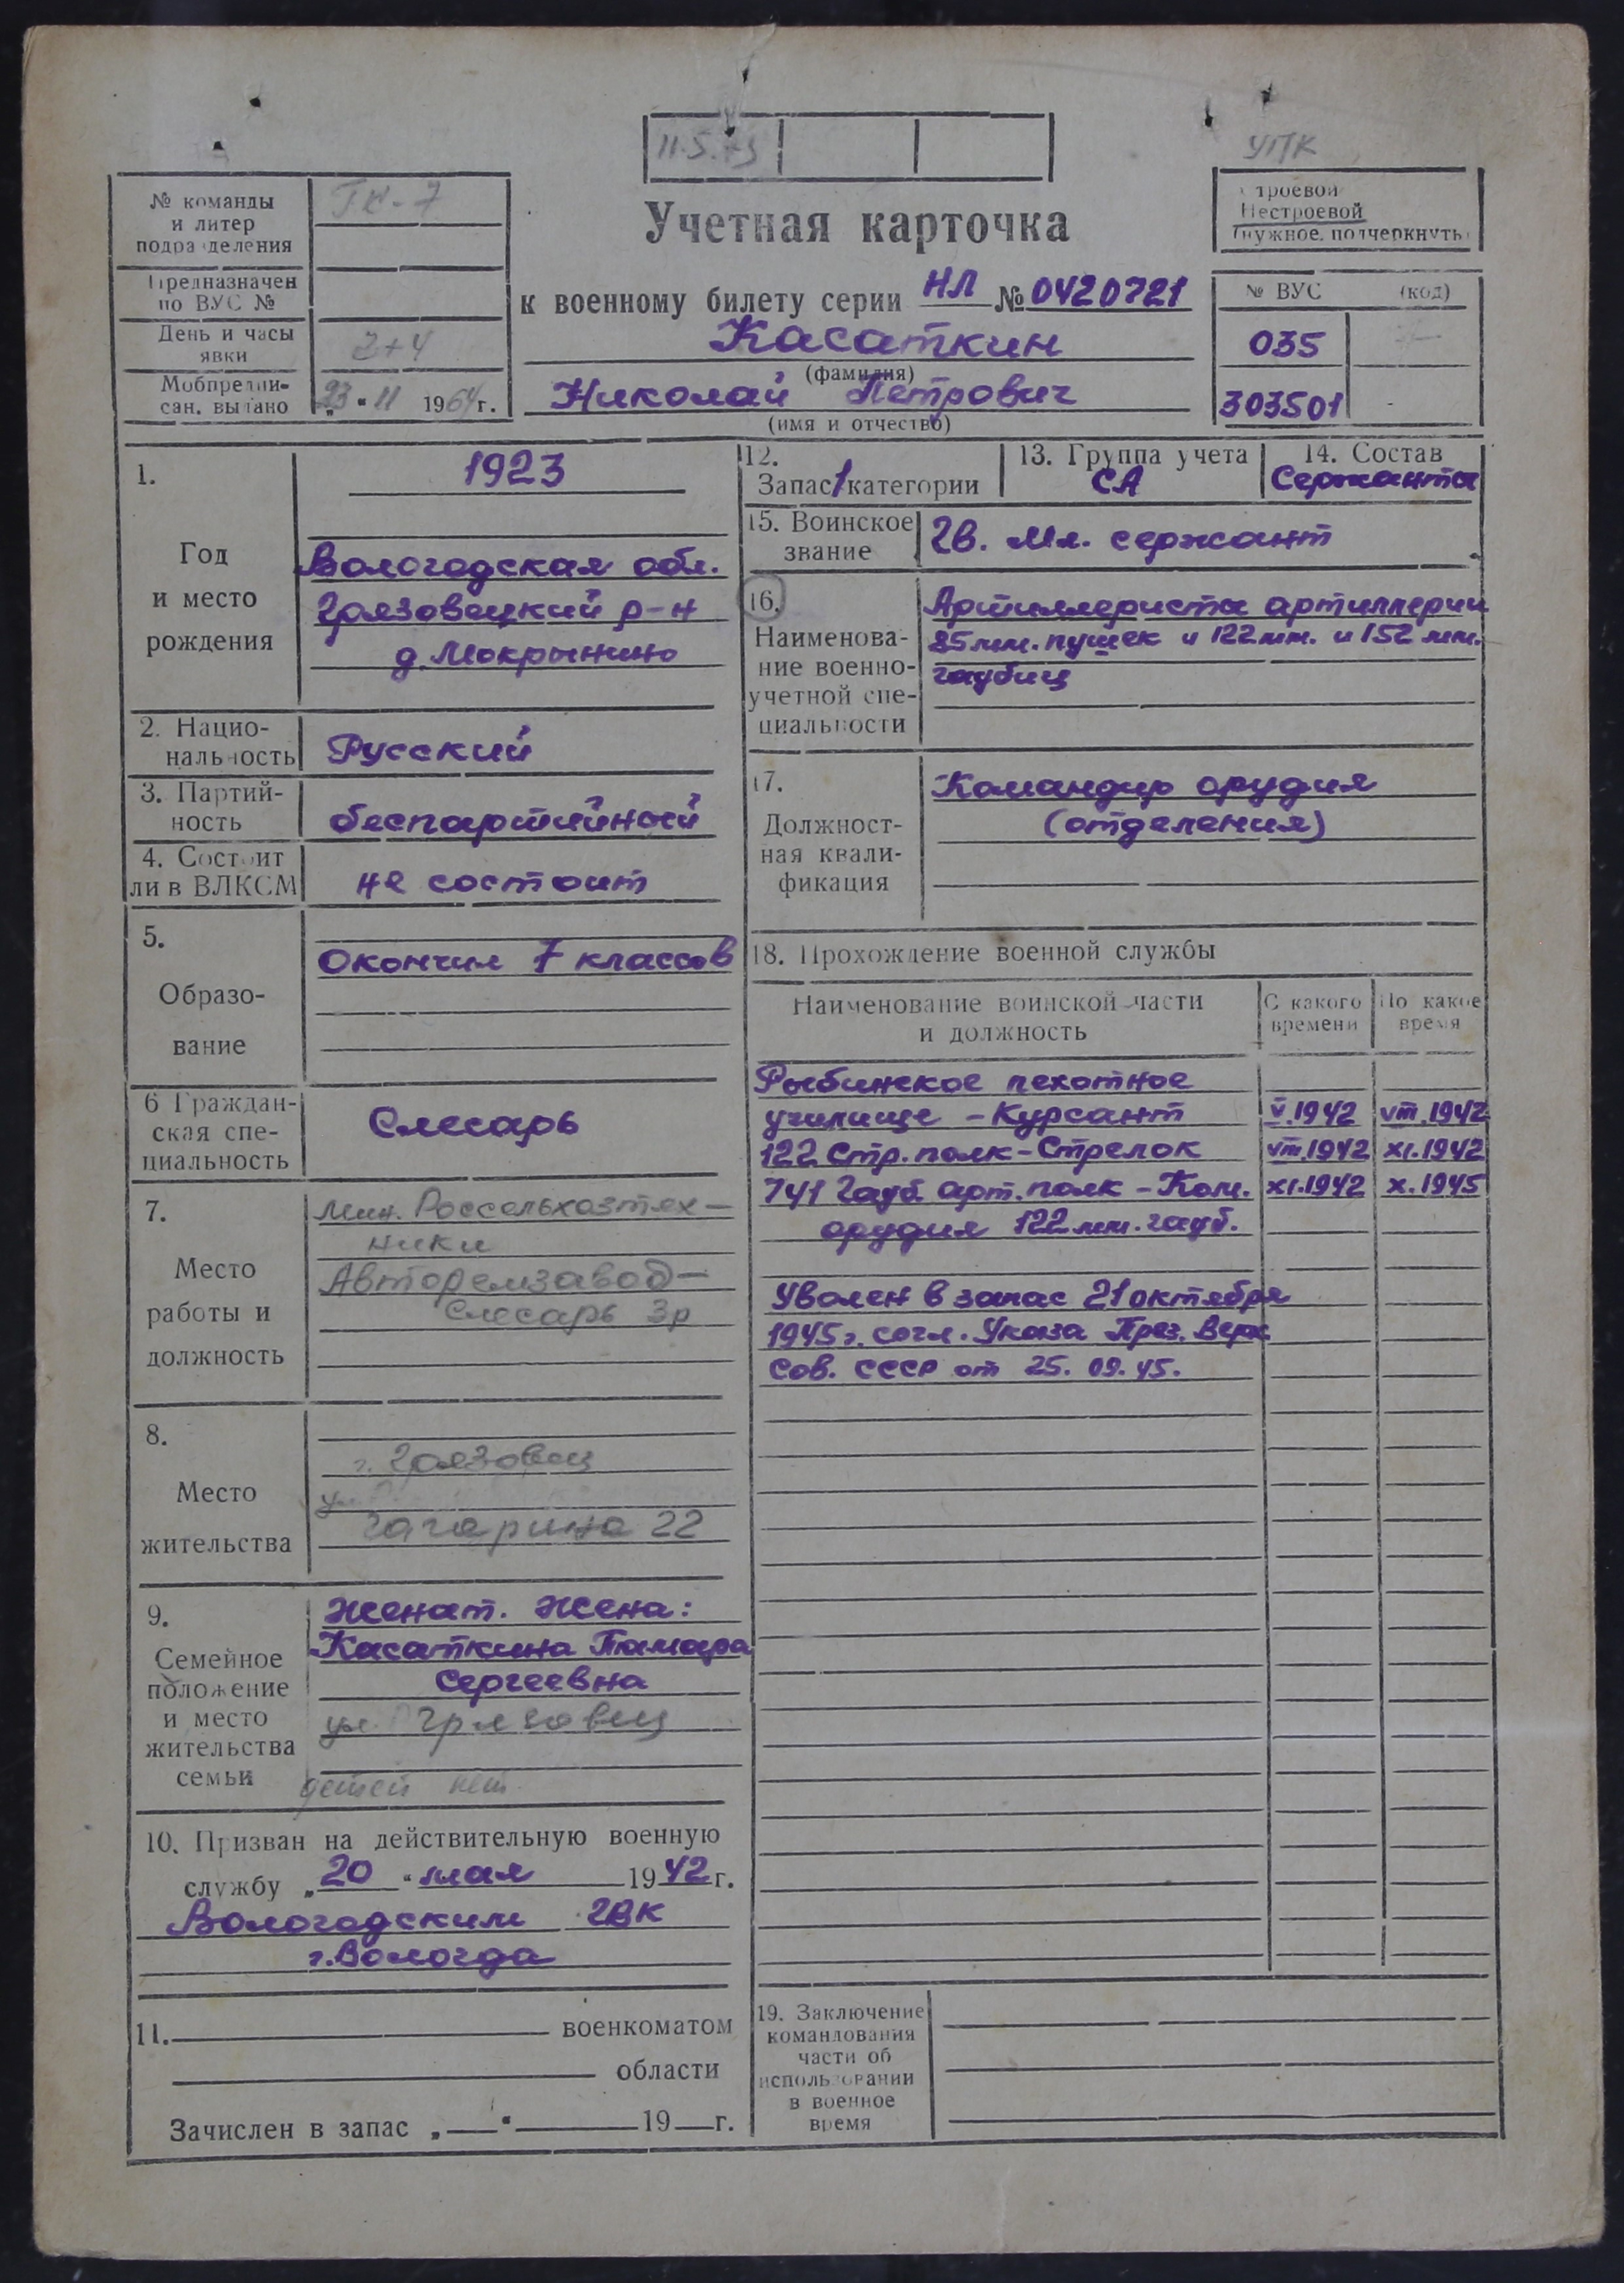 11.5.73
УПК
№ команды
и литер
подразделения
ГК-7
Предназначен
по ВУС №
День и часы
явки
2+4
Мобпредпи-
сан. выдано
„23“ 11 1964г.
Учетная карточка
к военному билету серии НЛ № 0420721
Касаткин
(фамилия)
Николай Петрович
(имя и отчество)
Строевой
Нестроевой
(нужное подчеркнуть)
№ ВУС (код)
035
303501
1.
Год
и место
рождения
1923
Вологодская обл.
Грязовецкий р-н
д. Мокрынино
2. Нацио-
нальность
Русский
3. Партий-
ность
беспартийный
4. Состоит
ли в ВЛКСМ
не состоит
5.
Образо-
вание
Окончил 7 классов
6 Граждан-
ская спе-
циальность
Слесарь
7.
Место
работы и
должность
Мин. Россельхозтех-
ники
Авторемзавод-
Слесарь 3р
8.
Место
жительства
г. Грязовец
Гагарина 22
9.
Семейное
положение
и место
жительства
семьи
Женат. Жена:
Касаткина Тамара
Сергеевна
Грязовец
детей нет
10. Призван на действительную военную
службу „20“ мая 1942г.
Вологодским ГВК
г. Вологда
11. военкоматом
области
Зачислен в запас „ “ 19 г.
12.
Запас 1 категории
13. Группа учета
СА
14. Состав
Сержанты
15. Воинское
звание
Гв. Мл. сержант
16.
Наименова-
ние военно-
учетной спе-
циальности
Артиллеристы артиллерии
85мм. пушек и 122мм. и 152 мм.
гаубиц
17.
Должност-
ная квали-
фикация
Командир орудия
(отделения)
18. Прохождение военной службы
Наименование воинской части
и должность
С какого
времени
По какое
время
Рыбинское пехотное
училище - Курсант V.1942 VIII.1942
122 Стр. полк - Стрелок VIII.1942 XI.1942
741 Гауб. арт. полк - Ком. XI.1942 X.1945
орудия 122 мм. гауб.
Уволен в запас 21 октября
1945г. согл. Указа През. Верх
Сов. СССР от 25.09.45.
19. Заключение
командования
части об
использовании
в военное
время